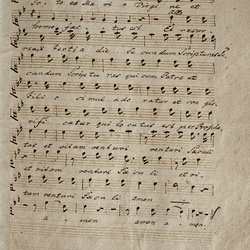 Virgi ne et
homo fac tus Et resur
rexit tertia die Secundum Scripturas
cundum Scriptu ras qui cum Patre et
Fili o simul ado ratur et con glo
rifi catur qui lo cu tus est per Prophe
tas et vitam venturi venturi Sæculi
et vitam venturi Sæ cu li et vi
tam venturi Sæ cu li amen
a men amen a men.